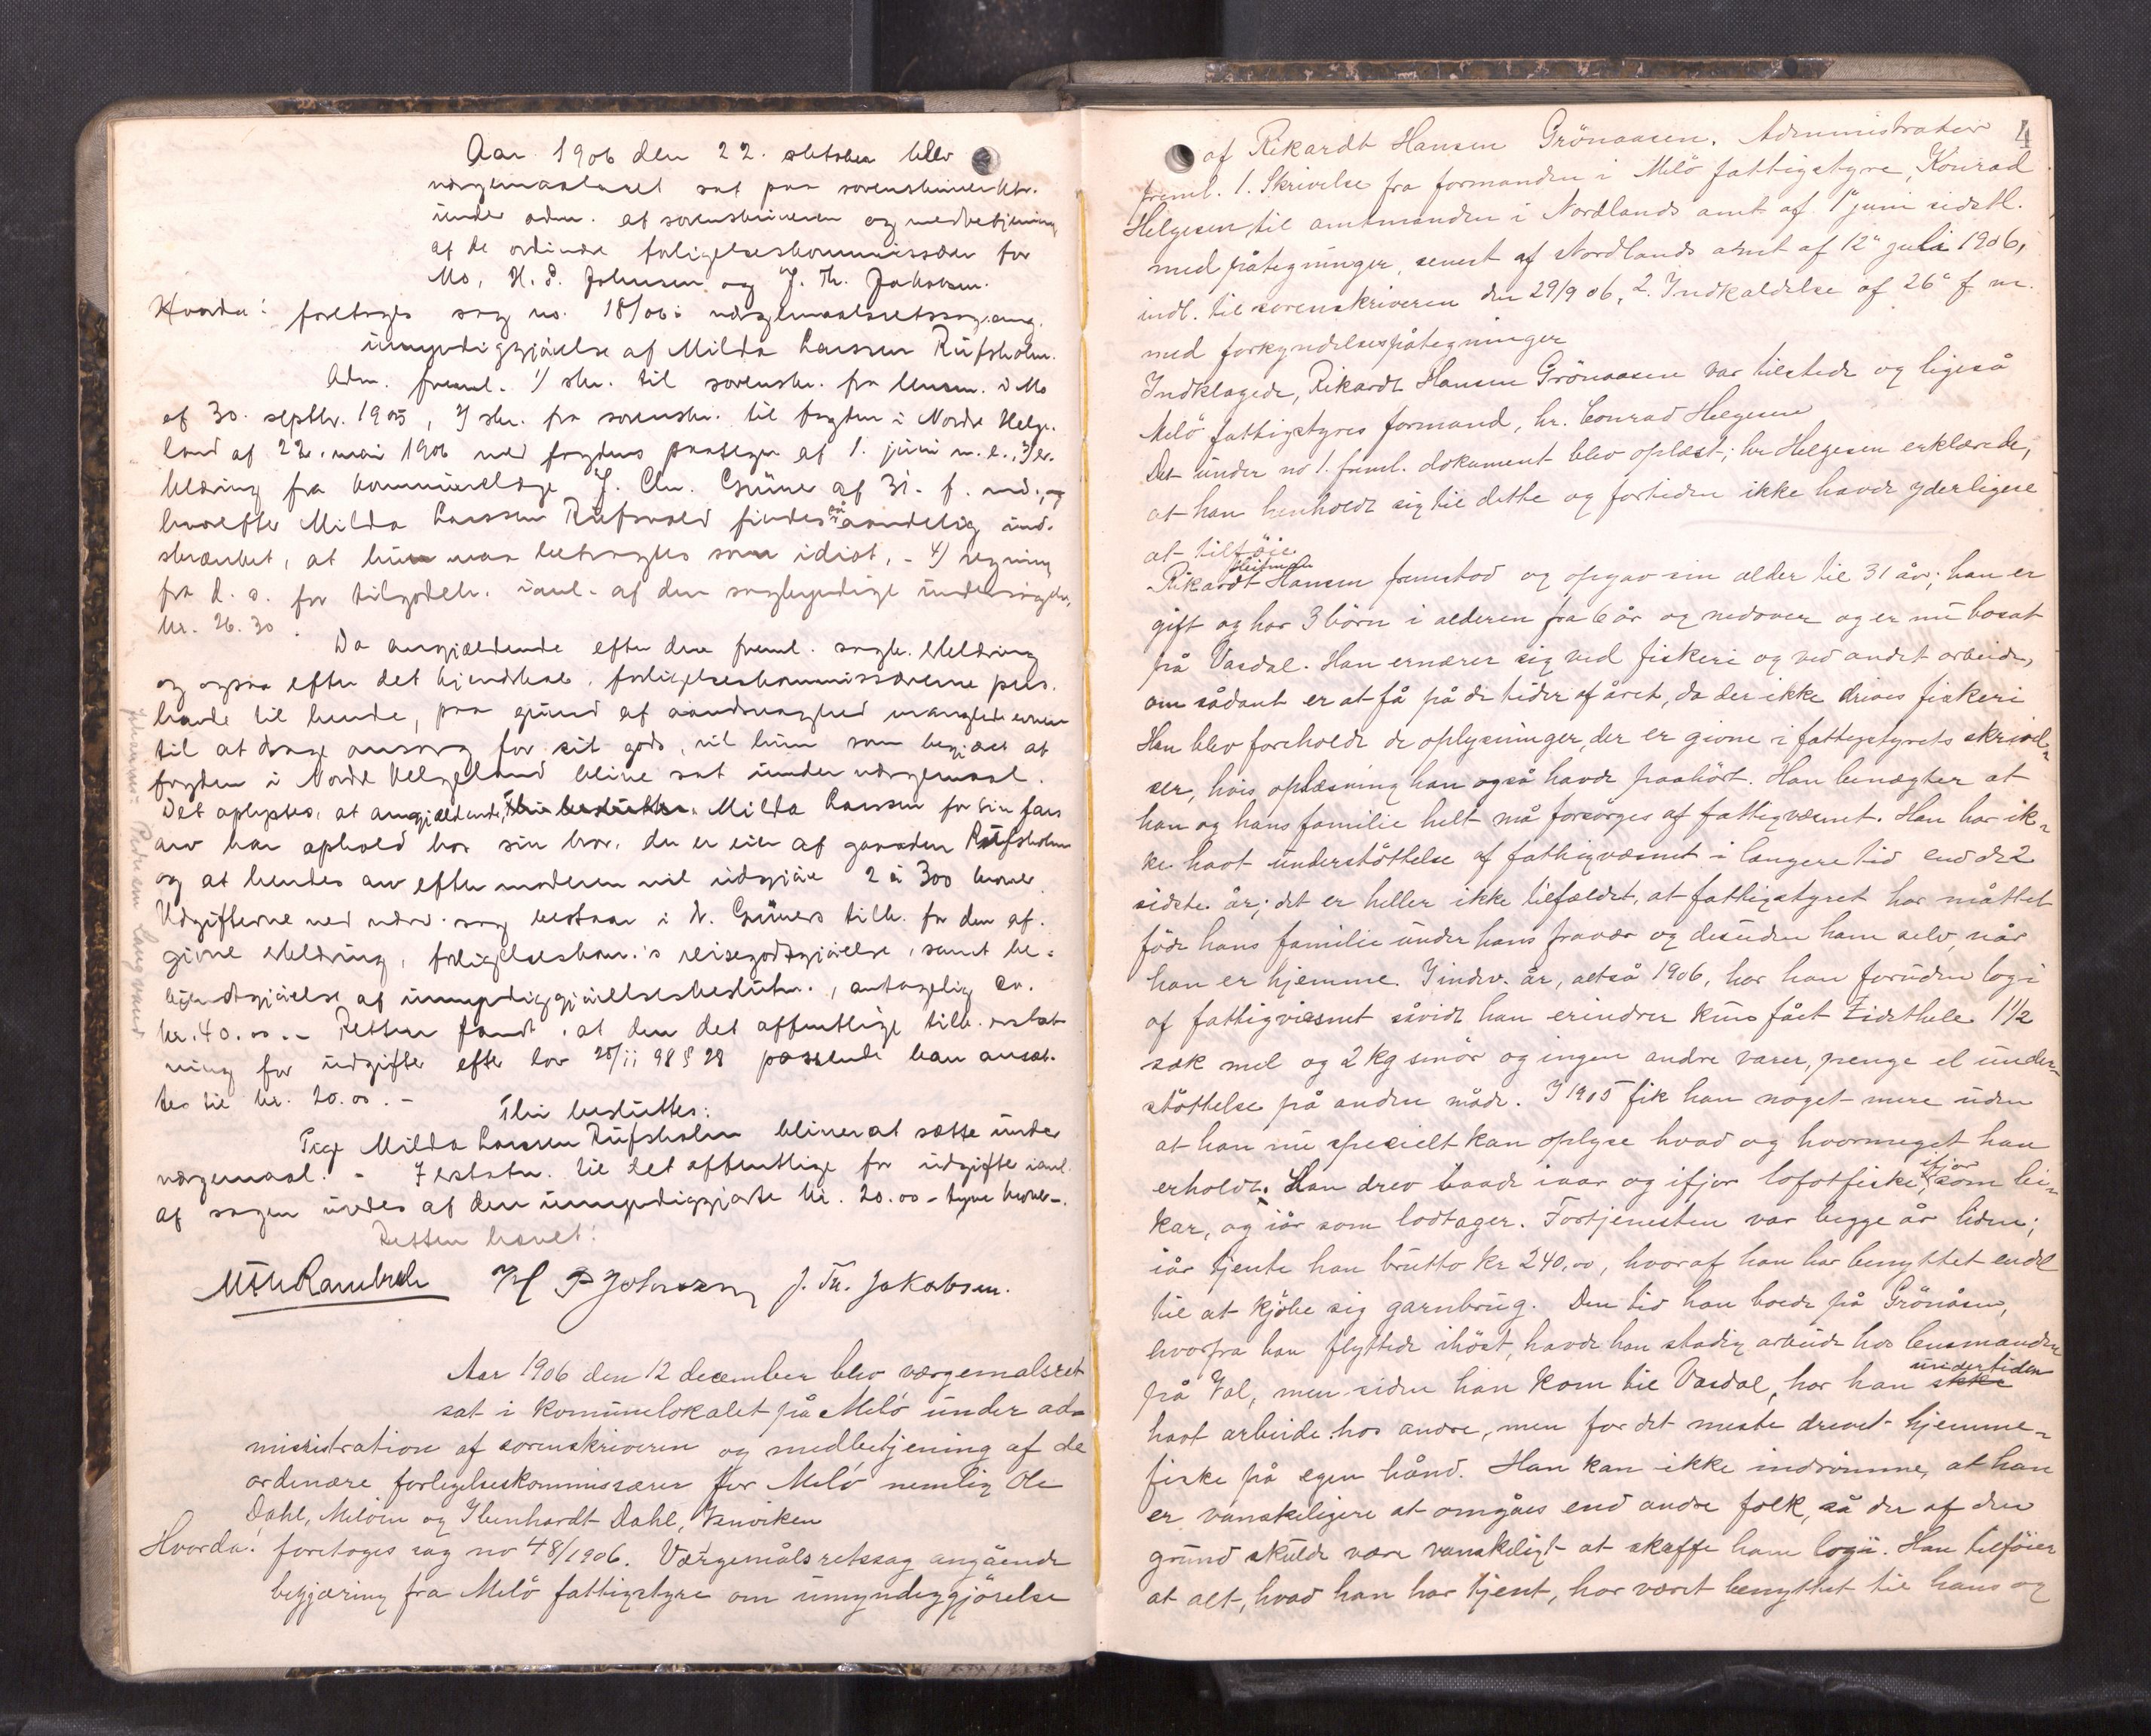 Aar 1906 den 22. oktober blev
værgemaalsret sat paa sorenskriverktr.
under adm. af sorenskriveren og medbetjening
af de ordinære forligelseskommissærer for
Mo, H. P. Johnsen og J. Th. Jakobsen.
Hvorda: foretoges sag no. 18/06: værgemaalsretssag ang.
umyndiggjørelse af Milda Larssen Rufsholm.
Adm. freml. 1/ skr. til sorenskr. fra lensm. i Mo
af 30. septbr. 1905, 2/ skr. fra sorenskr. til fogden i Nordre Helge-
land af 22. mai 1906 med fogdens paategn. af 1. juni n. e., 3/ er-
klæring fra kommunelæge J. Chr. Grüner af 31. f. md., og
hvorefter Milda Larssen Rufsvold findes saa aandelig ind-
skrænket, at hun maa betragtes som idiot, - 4/ regning
fra d. s. for tilgodeh. i anl. af den sagkyndige undersøgelse,
kr. 26.30.
Da angjældende efter den freml. sagk. erklæring
og ogsaa efter det kjendskab, forligelseskommissærerne pers.
havde til hende, paa grund af aandssvaghed manglede evnen
til at drage omsorg for sit gods, vil hun som begjært at
fogden i Nordre Helgeland blive sat under værgemaal.
Det oplystes, at angjældende, Thi besluttes: Milda Larssen for sin fars
arv har ophold hos sin bror, der er eier af gaarden Rufsholm
og at hendes arv efter moderen vil udgjøre 2 à 300 kroner.
Udgifterne ved nærv. sag bestaar i dr. Grüners tilh. for den af-
givne erklæring, forligelseskom.'s reisegodtgjørelse, samt be-
kjendtgjørelse af umyndiggjørelsesbeslutn., antagelig ca.
kr. 40.00. - Retten fandt, at den det offentlige tilk. erstat-
ning for udgifter efter lov 28/11 98 § 28 passende kan ansæt-
tes til kr. 20.00. -
Thi besluttes:
Pige Milda Larssen Rufsholm bliver at sætte under
værgemaal. - I erstatn. til det offentlige for udgifter i anl.
af sagen udredes af den umyndiggjorte kr. 20.00 - tyve kroner -.
Retten hævet:
H P Johnsen J. Th. Jakobsen.
Johanna Pedersen Langvand
Aar 1906 den 12 december blev værgemalsret
sat i kommunelokalet på Melö under ad-
ministration af sorenskriveren og medbetjening af de
ordenære forlegelseskommissærer for Melö nemlig Ole
Dahl, Melöen og Ibenhardt Dahl, Esviken
Hvorda: foretoges sag no 48/1906. Værgemålsretssag angående
begjæring fra Melö fattigstyre om umyndeggjörelse
4
af Rikardt Hansen Grönaasen. Administrator
freml. 1. Skrivelse fra formanden i Melö fattigstyre, Konrad
Helgesen, til amtmanden i Nordlands amt af 1" juni sidstl.
med påtegninger, senest af Nordlands amt af 12" juli 1906,
indl. til sorenskriveren den 29/9 06, 2. Indkaldelse af 26" f. m.
med forkyndelsespåtegninger
Indklagede, Rikardt Hansen Grönaasen var tilstede og ligeså
Melö fattigstyres formand, hr. Conrad Helgesen
Det under no 1. freml. dokument blev oplæst; hr Helgesen erklærede,
at han henholdt sig til dette og fortiden ikke havde yderligere
at tilföie
Rikardt Hansen fremstod og opgav sin alder til 31 år; han er
gift og har 3 börn i alderen fra 6 år og nedover og er nu bosat
på Vasdal. Han ernærer sig ved fiskeri og ved andet arbeide,
om sådant er at få på de tider af året, da der ikke drives fiskeri
Han blev foreholdt de oplysninger, der er givne i fattigstyrets skrivel-
ser, hvis oplæsning han også havde paahört. Han benægter at
han og hans familie helt må forsörges af fattigvæsnet. Han har ik-
ke havt understöttelse af fattigvæsnet i længere tid end de 2
sidste år; det er heller ikke tilfældet, at fattigstyret har måttet
föde hans familie under hans fravær og desuden ham selv, når
han er hjemme. I indev. år, altså 1906, har han foruden logi
af fattigvæsnet såvidt han erindrer kun fået tidsthele 1½
sæk mel og 2 kg smör og ingen andre varer, penge el under-
stöttelse på anden måde. I 1905 fik han noget mere uden
at han nu specielt kan oplyse hvad og hvormeget han
erholdt. Han drev baade iaar og ifjor lofotfiske, ifjor som lei-
kar, og iår som lodtager. Fortjenesten var begge år liden;
iår tjente han brutto kr 240,00, hvoraf han har benyttet endel
til at kjöbe sig garnbrug. Den tid han boede på Grönåsen,
hvorfra han flyttede ihöst, havde han stadig arbeide hos lensmanden
på Val, men siden han kom til Vasdal, har han ikke undertiden
havt arbeide hos andre, men for det meste drevet hjemme-
fiske på egen hånd. Han kan ikke indrömme, at han
er vanskeligere at omgåes end andre folk, så der af den
grund skulde være vanskeligt at skaffe ham logi. Han tilföier
at alt, hvad han har tjent, har været benyttet til hans og